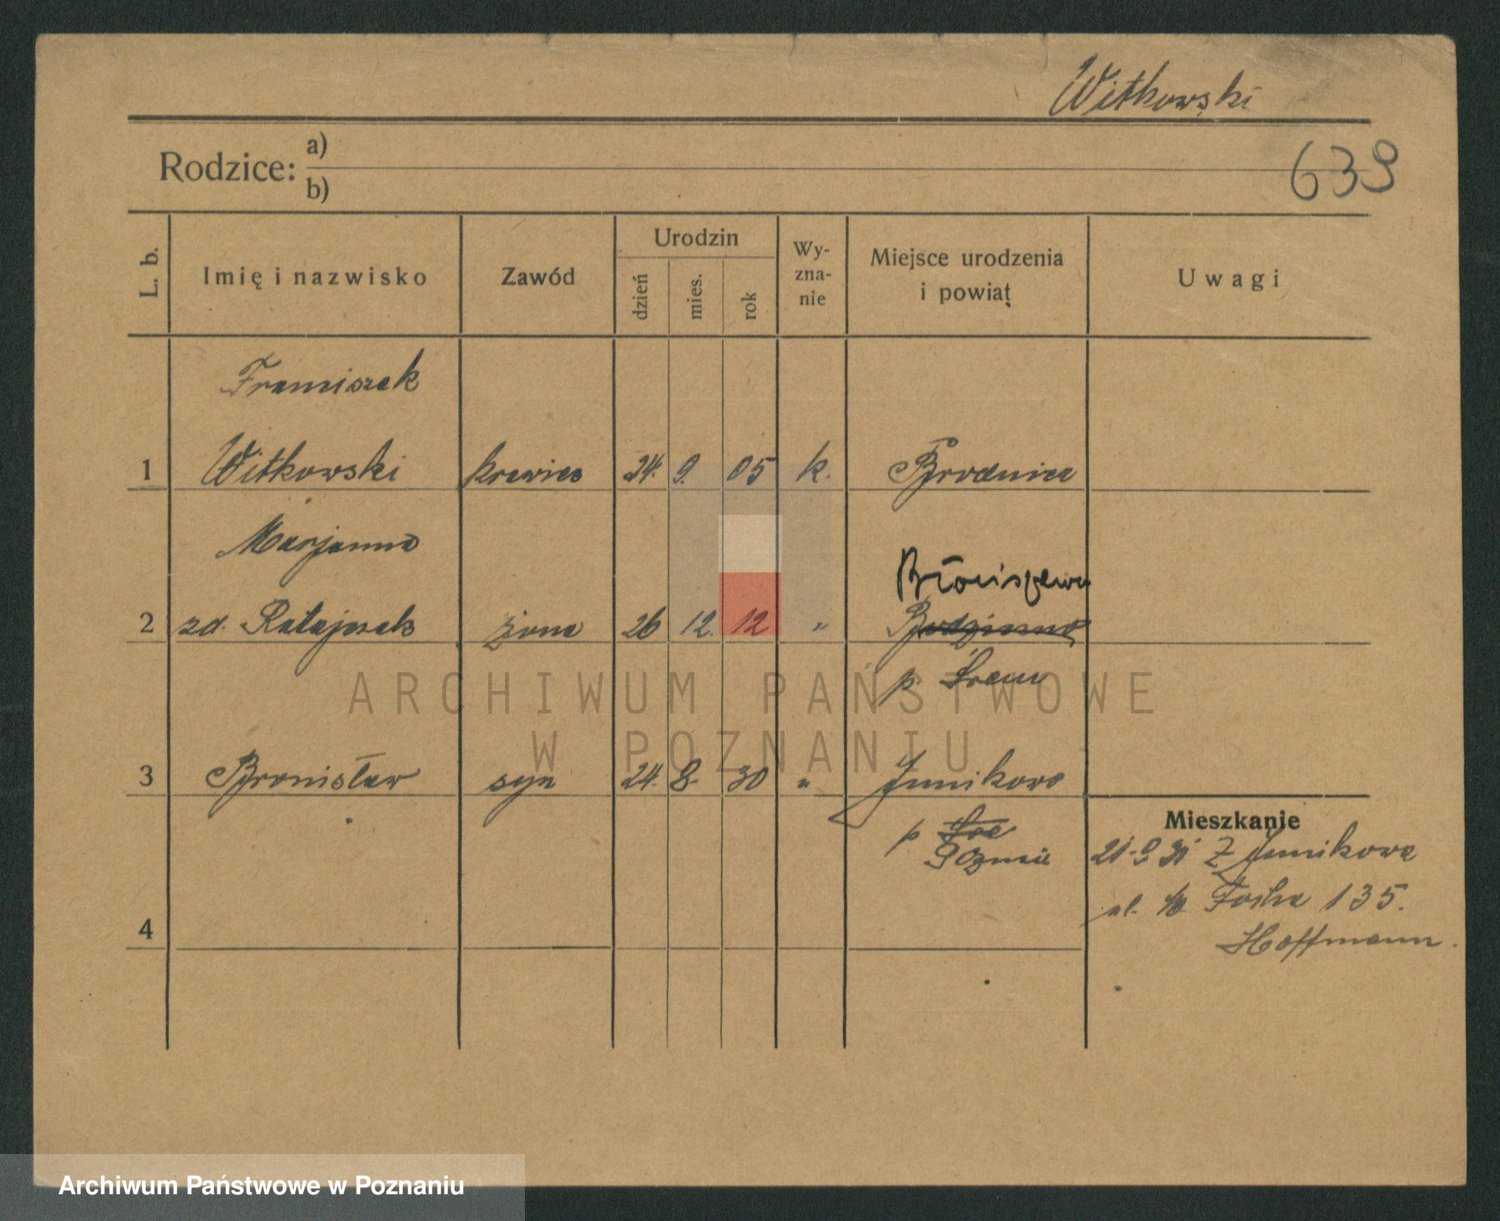 Witkowski
639
Rodzice: a)
b)
L. b. Imię i nazwisko Zawód Urodzin dzień mies. rok Wy-zna-nie Miejsce urodzenia i powiat Uwagi
Franciszek
1 Witkowski krawiec 24. 9. 05 k. Brodnica
Marjanna
Błociszewo
2 zd. Ratajczak żona 26 12. 12 „ Brodzinno
p. Śrem
3 Bronisław syn 24. 8. 30 „ Junikowo
p Śre
Poznań
Mieszkanie
21.9.31 z Junikowa
ul. Focha 135.
Hoffmann.
4
ARCHIWUM PAŃSTWOWE
W POZNANIU
Archiwum Państwowe w Poznaniu